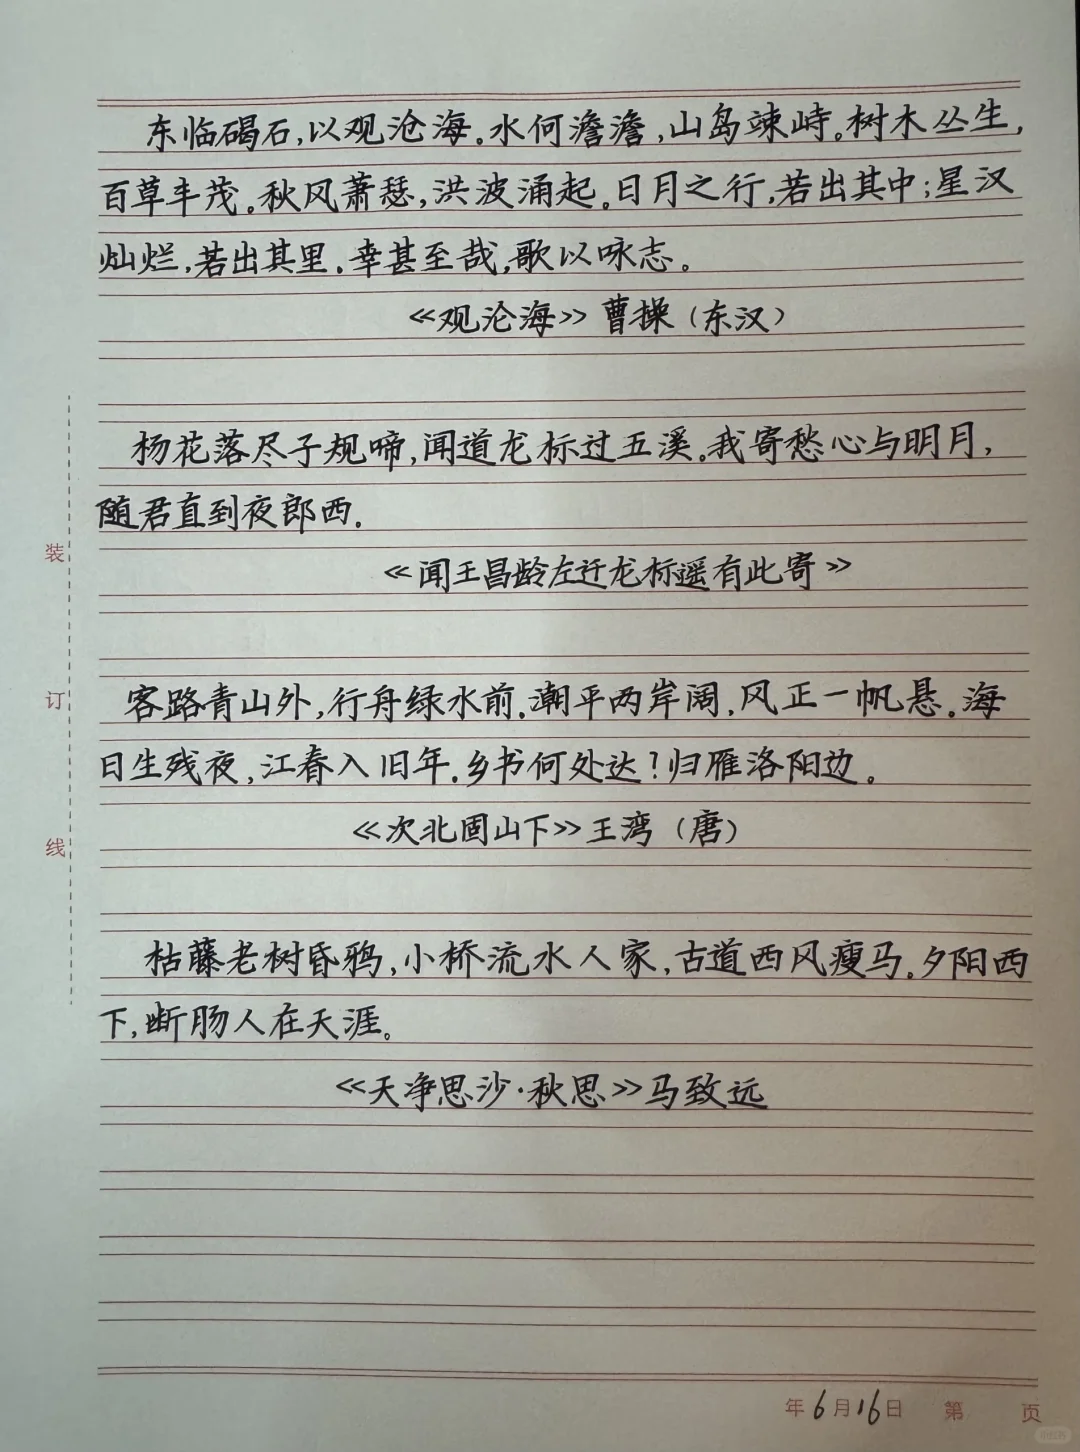 东临碣石,以观沧海。水何澹澹,山岛竦峙。树木丛生,
百草丰茂。秋风萧瑟,洪波涌起。日月之行,若出其中;星汉
灿烂,若出其里。幸甚至哉,歌以咏志。
《观沧海》曹操(东汉)
杨花落尽子规啼,闻道龙标过五溪。我寄愁心与明月,
随君直到夜郎西。
《闻王昌龄左迁龙标遥有此寄》
客路青山外,行舟绿水前。潮平两岸阔,风正一帆悬。海
日生残夜,江春入旧年。乡书何处达?归雁洛阳边。
《次北固山下》王湾(唐)
枯藤老树昏鸦,小桥流水人家,古道西风瘦马。夕阳西
下,断肠人在天涯。
《天净思沙·秋思》马致远
装
订
线
年6月16日 第 页